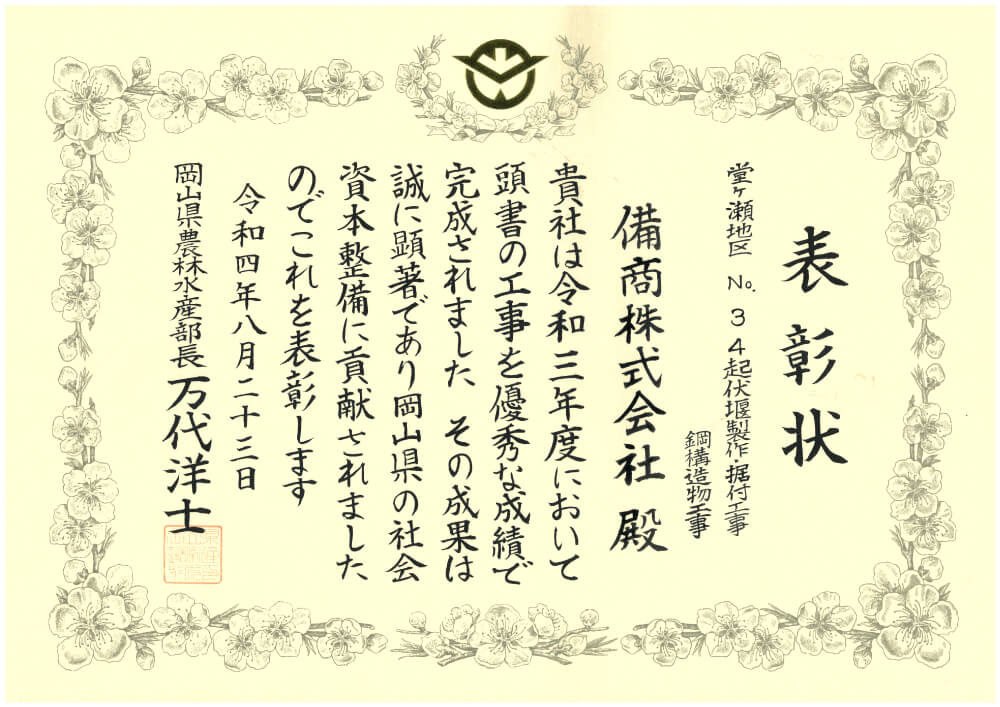 表彰状
堂ヶ瀬地区 No.34起伏堰製作・据付工事
鋼構造物工事
備商株式会社 殿
貴社は令和三年度において
頭書の工事を優秀な成績で
完成されました その成果は
誠に顕著であり岡山県の社会
資本整備に貢献されました
のでこれを表彰します
令和四年八月二十三日
岡山県農林水産部長 万代洋士